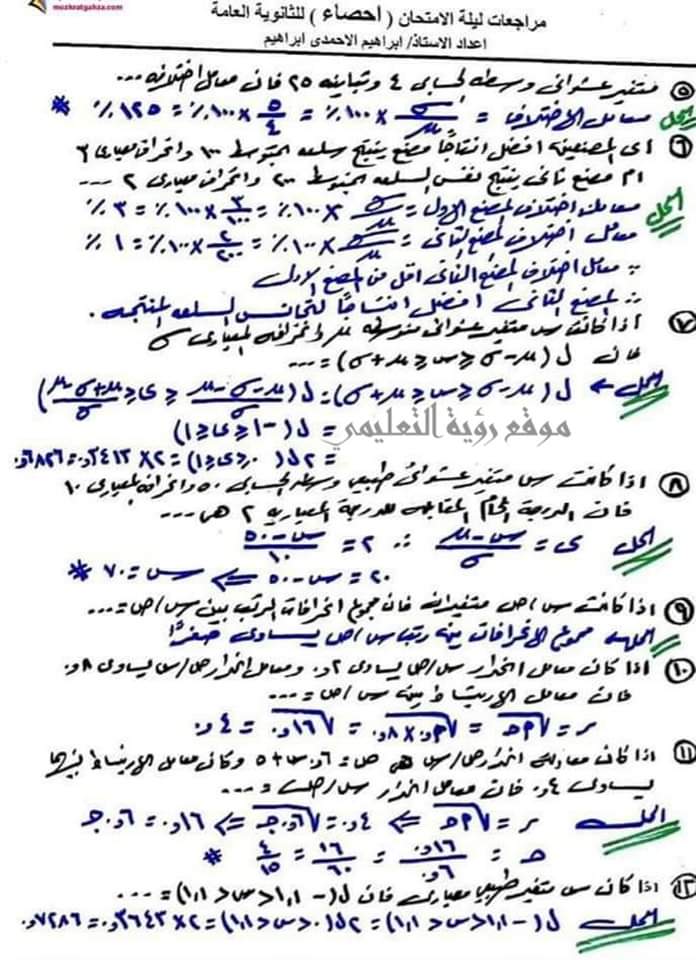 mozkratgahza.com
مراجعات ليلة الامتحان ( احصاء ) للثانوية العامة
اعداد الاستاذ/ ابراهيم الاحمدى ابراهيم
٥ متغير عشوائى وسطه الحسابى ٤ وتباينه ٢٥ فان معامل اختلافه ...
الحل معامل الاختلاف = σ/μ × ١٠٠٪ = ٥/٤ × ١٠٠٪ = ١٢٥٪ *
٦ اى المصنعين افضل انتاجًا مصنع ينتج سلعه المتوسط ١٠٠ وانحراف معيارى ٣
ام مصنع ثانى ينتج نفس السلعه المتوسط ٢٠٠ وانحراف معيارى ٢ ...
الحل معامل اختلاف المصنع الاول = σ/μ × ١٠٠٪ = ٣/١٠٠ × ١٠٠٪ = ٣٪
معامل اختلاف المصنع الثانى = σ/μ × ١٠٠٪ = ٢/٢٠٠ × ١٠٠٪ = ١٪
∵ معامل اختلاف المصنع الثانى اقل من المصنع الاول
∴ المصنع الثانى افضل انتاجًا لتجانس السلعه المنتجه .
٧ اذا كانت س متغير عشوائى متوسطه μ وانحرافه المعيارى σ
فان ل(μ - σ ≤ س ≤ μ + σ) = ...
الحل ← ل(μ - σ ≤ س ≤ μ + σ) = ل((μ - σ - μ)/σ ≤ ى ≤ (μ + σ - μ)/σ)
= ل(-١ ≤ ى ≤ ١)
موقع رؤية التعليمي
= ٢ل(٠ ≤ ى ≤ ١) = ٢ × ٣٤١٣و. = ٦٨٢٦و.
٨ اذا كانت س متغير عشوائى طبيعى وسطه الحسابى ٥٠ وانحرافه المعيارى ١٠
فان الدرجة الخام المقابله للدرجة المعياريه ٢ هى ...
الحل ى = (س - μ)/σ ∴ ٢ = (س - ٥٠)/١٠
٢٠ = س - ٥٠ ⇐ س = ٧٠ *
٩ اذا كانت س/ص متغيران فان مجموع انحرافات الرتب بين س/ص = ...
الحل مجموع الانحرافات بين رتب س/ص يساوى صفرًا
١٠ اذا كان معامل انحدار س/ص يساوى ٢و. ومعامل انحدار ص/س يساوى ٨و.
فان معامل الارتباط بين س/ص = ...
ر = √أحـ = √٢و. × ٨و. = √١٦و. = ٤و.
١١ اذا كان معادلة انحدار ص/س هى ص = ٦و. س + ٥ وكان معامل الارتباط بينهما
يساوى ٤و. فان معامل انحدار س/ص = ...
الحل ر = √أحـ ⇐ ٤و. = √٦و. حـ ⇐ ١٦و. = ٦و. حـ
حـ = ١٦و./٦و. = ١٦/٦٠ = ٤/١٥ *
١٢ اذا كان س متغير طبيعى معيارى فان ل(-١,١ < س < ١,١) = ...
الحل ل(-١,١ < س < ١,١) = ٢ل(٠ < س < ١,١) = ٢ × ٣٦٤٣و. = ٧٢٨٦و.